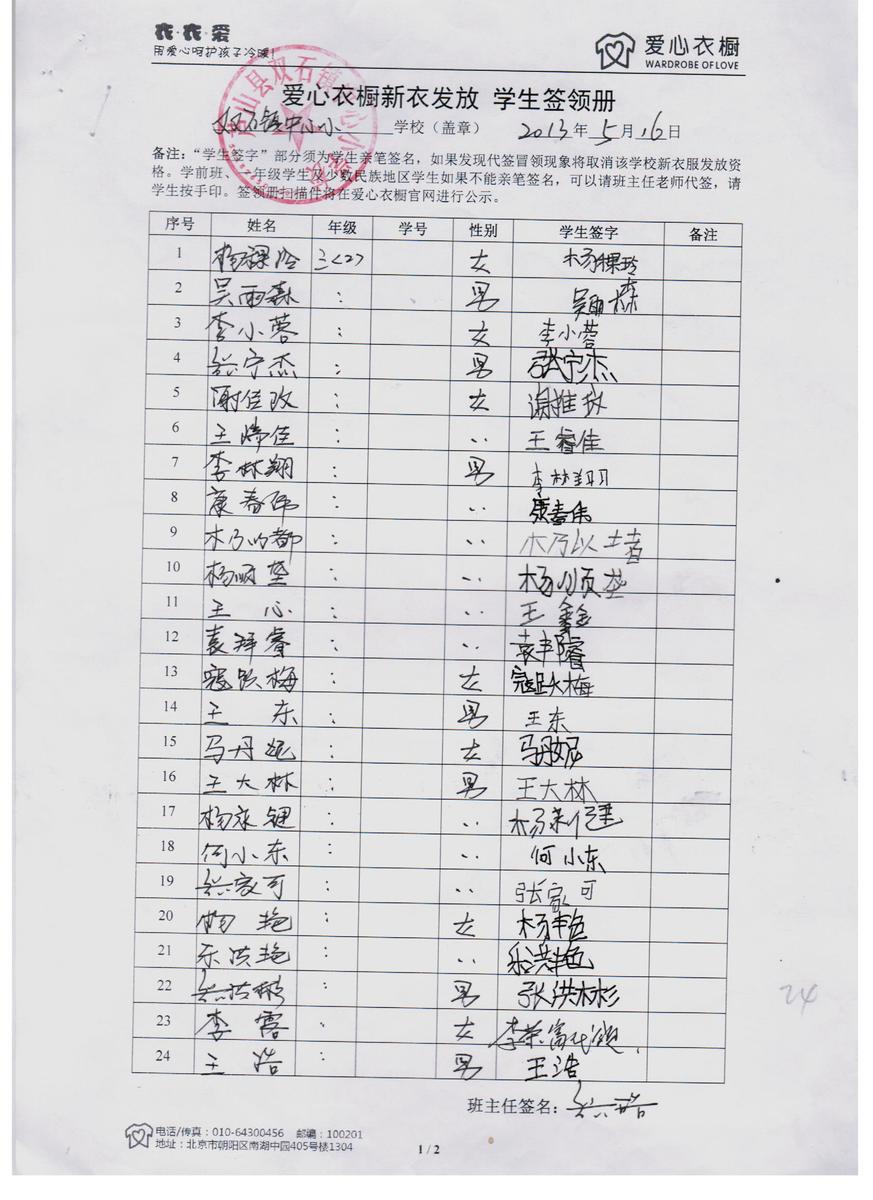 衣·衣·爱
用爱心呵护孩子冷暖!
爱心衣橱
WARDROBE OF LOVE
爱心衣橱新衣发放 学生签领册
双石镇中心小 学校（盖章） 2013年5月16日
备注：“学生签字”部分须为学生亲笔签名，如果发现代签冒领现象将取消该学校新衣服发放资
格。学前班、一年级学生及少数民族地区学生如果不能亲笔签名，可以请班主任老师代签，请
学生按手印。签领册扫描件将在爱心衣橱官网进行公示。
序号 姓名 年级 学号 性别 学生签字 备注
1 三<2> 女 杨稞玲
2 吴雨森 : 男 吴雨森
3 李小蓉 : 女 李小蓉
4 张宁杰 : 男 张宁杰
5 谢佳玫 : 女
6 : ·· 王睿佳
7 李林翔 : 男 李林翔
8 康春伟 : ·· 康春伟
9 : ··
10 杨顺垄 : ·· 杨顺垄
11 王心 : ·· 王鑫
12 : ··
13 寇跃梅 : 女 寇跃梅
14 王东 : 男 王东
15 马丹妮 : 女 马丹妮
16 王大林 : 男 王大林
17 : ··
18 何小东 : ·· 何小东
19 张家可 : ·· 张家可
20 杨艳 : 女 杨艳
21 乐洪艳 : ·· 乐洪艳
22 : 男 张洪彬
23 李 : 女 李荣富代领.
24 王浩 : 男 王浩
24
班主任签名：
电话/传真：010-64300456 邮编：100201
地址：北京市朝阳区南湖中园405号楼1304
1 / 2